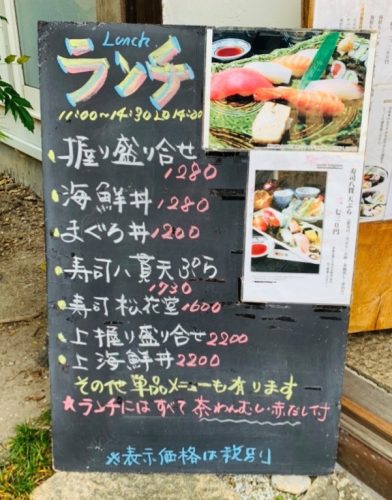 Lunch
ランチ
11:00〜14:30 LO 14:00
握り盛り合せ
1280
海鮮丼 1280
まぐろ丼 1200
寿司八貫天ぷら
1730
寿司松花堂 1600
上握り盛り合せ 2200
上海鮮丼 2200
その他単品メニューも有ります
★ランチにはすべて茶わんむし・赤だし付
※表示価格は税別
寿司八貫 天ぷら